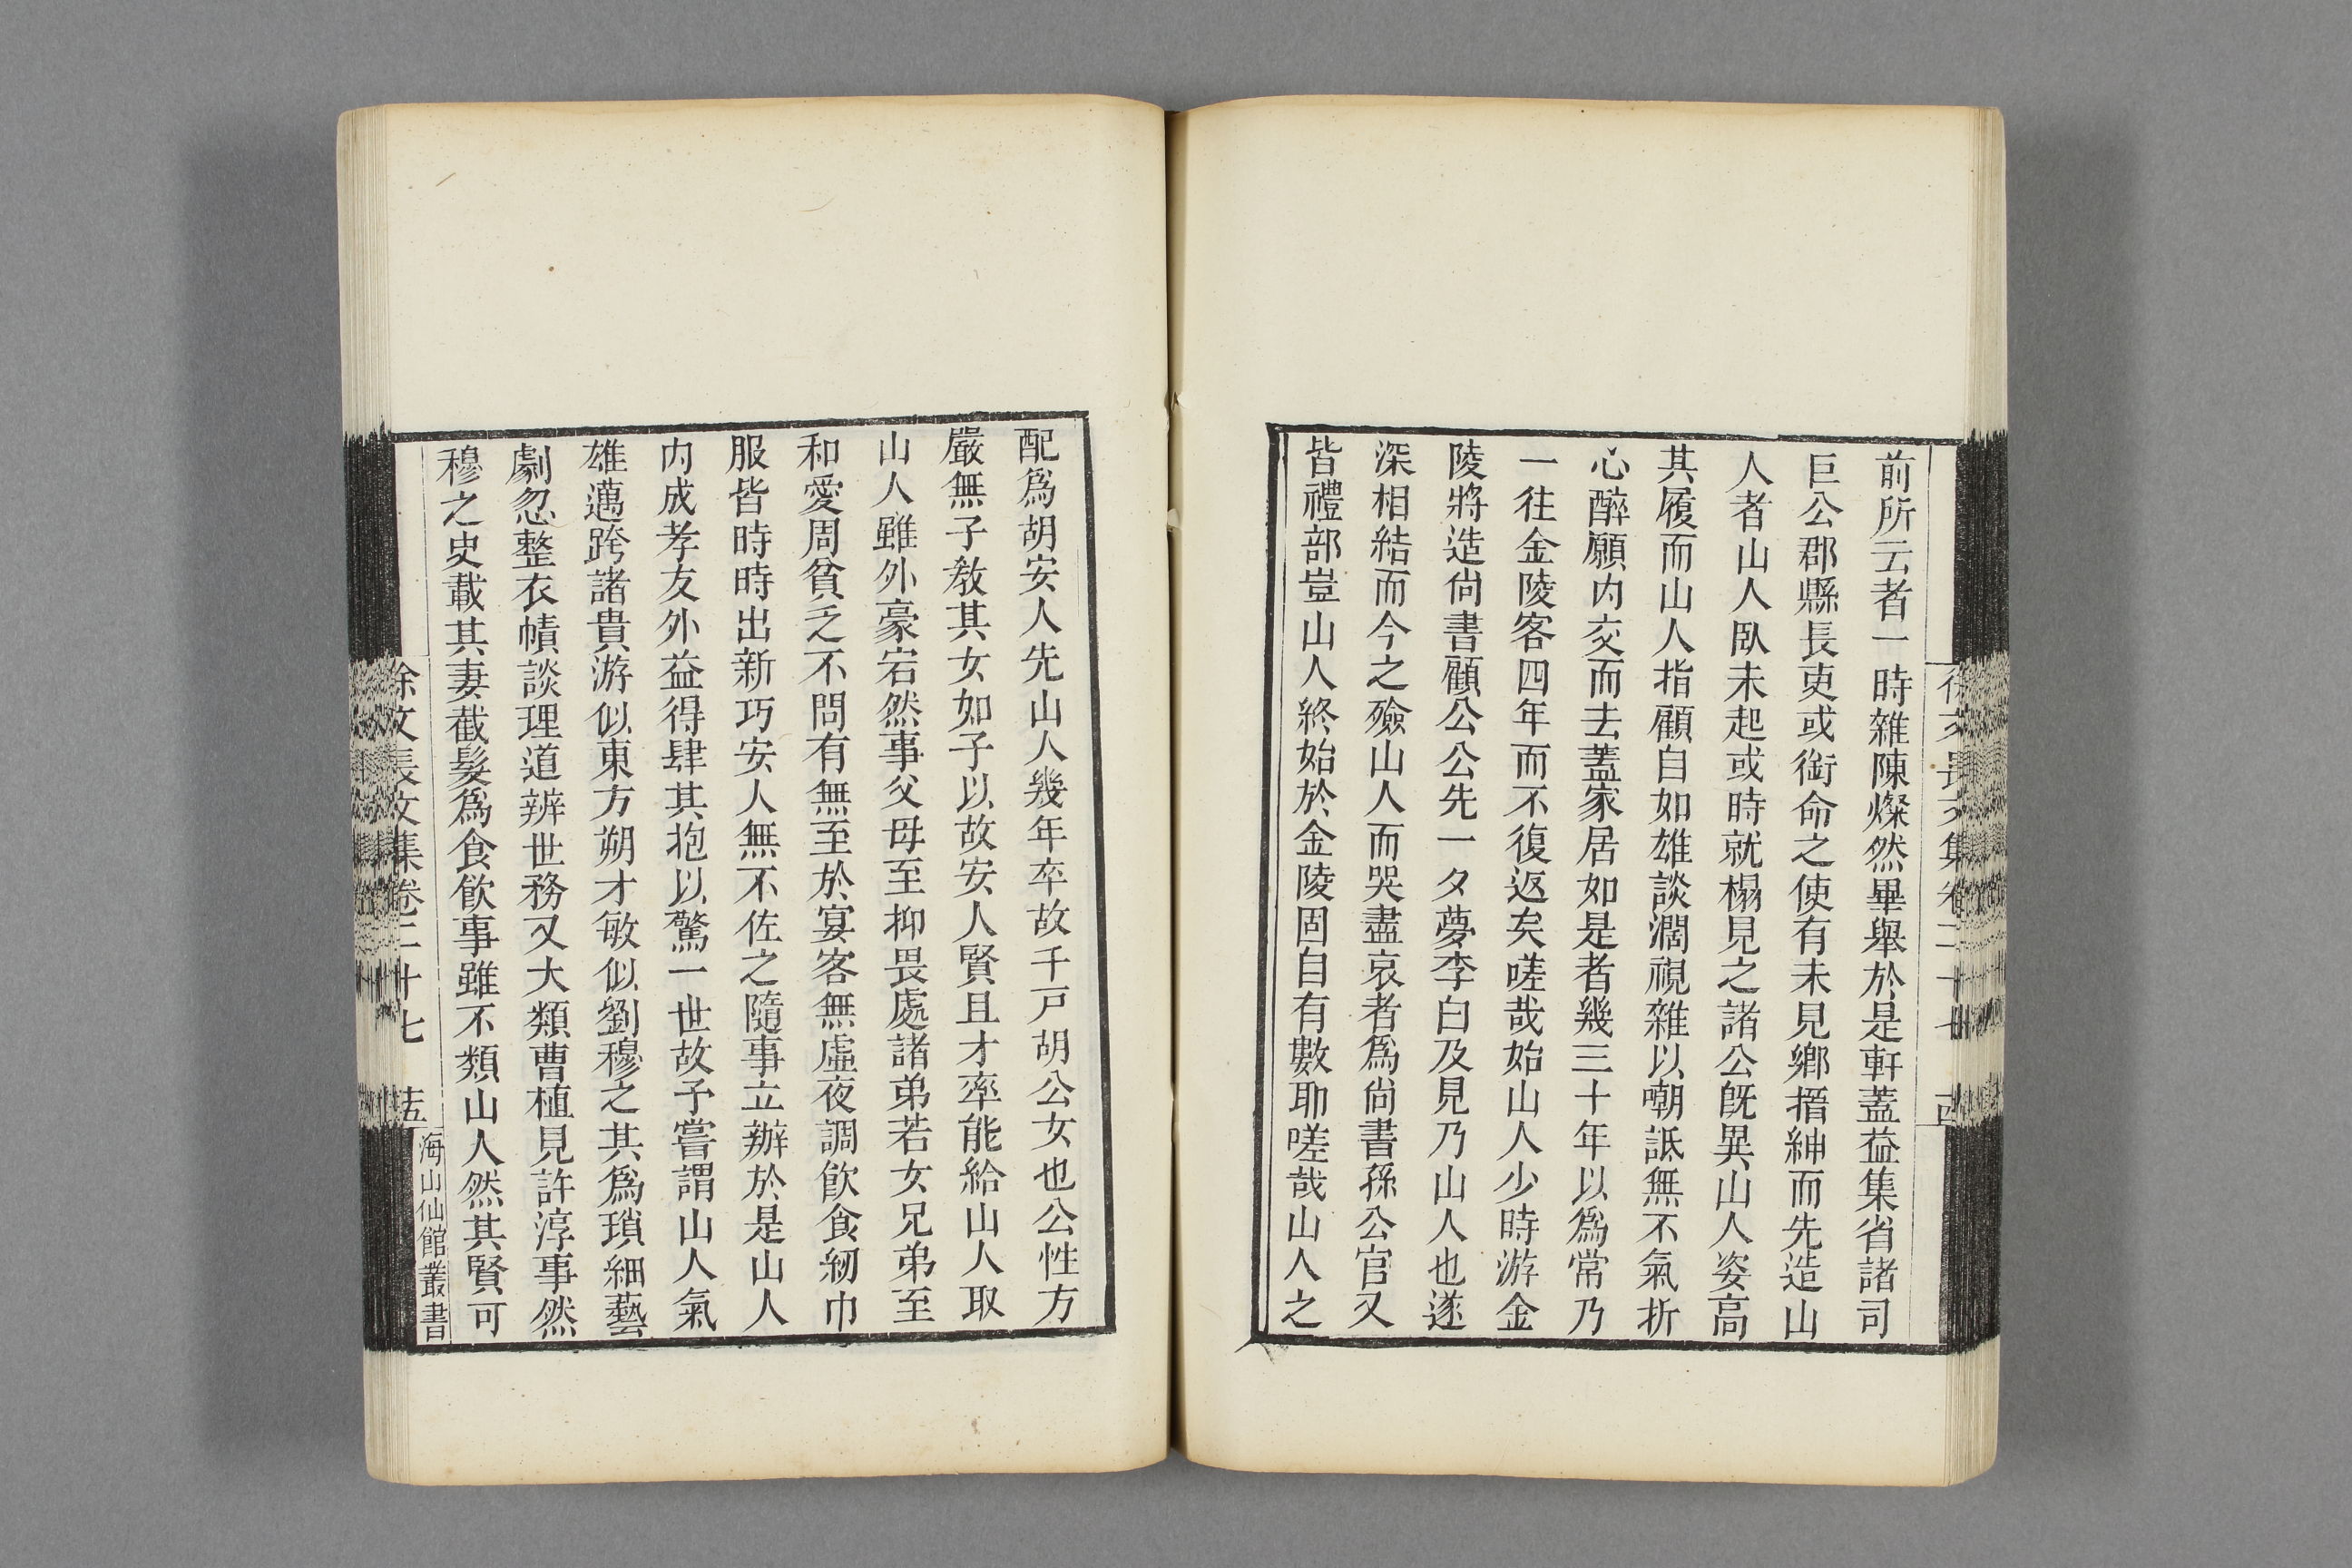 前所云者一時雜陳燦然畢舉於是軒蓋益集省諸司
巨公郡縣長吏或銜命之使有未見鄉搢紳而先造山
人者山人臥未起或時就榻見之諸公既異山人姿高
其履而山人指顧自如雄談濶視雜以嘲詆無不氣折
心醉願内交而去蓋家居如是者幾三十年以爲常乃
一往金陵客四年而不復返矣嗟哉始山人少時游金
陵將造尚書顧公公先一夕夢李白及見乃山人也遂
深相結而今之殮山人而哭盡哀者爲尚書孫公官又
皆禮部豈山人終始於金陵固自有數耶嗟哉山人之
配爲胡安人先山人幾年卒故千戸胡公女也公性方
嚴無子教其女如子以故安人賢且才率能給山人取
山人雖外豪宕然事父母至抑畏處諸弟若女兄弟至
和愛周貧乏不問有無至於宴客無虛夜調飮食紉巾
服皆時時出新巧安人無不佐之隨事立辦於是山人
内成孝友外益得肆其抱以驚一世故予嘗謂山人氣
雄邁跨諸貴游似東方朔才敏似劉穆之其爲瑣細藝
劇忽整衣幘談理道辨世務又大類曹植見許淳事然
穆之史載其妻截髮爲食飮事雖不類山人然其賢可
徐文長文集卷二十七
十五
海山仙館叢書